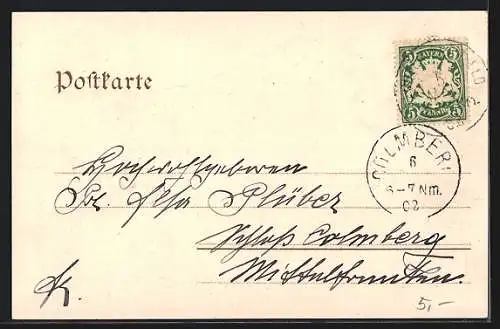 Postkarte
BAYERN
5 5
PFENNIG
COLMBERG
6
6-7 Nm.
02
Hochwohlgeboren
Plüber
Schloß Colmberg
Mittelfranken.
5,-